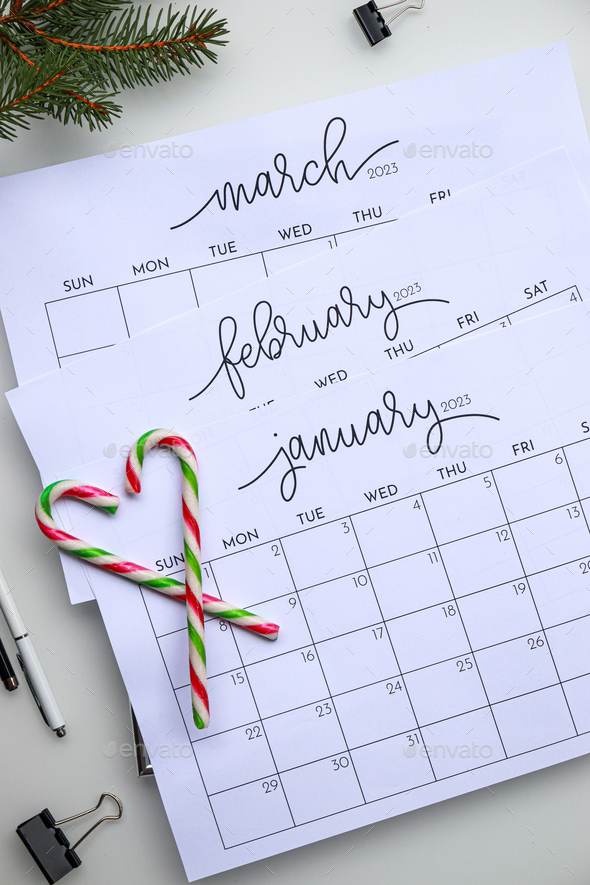 march 2023
SUN MON TUE WED THU FRI SAT
1
february 2023
TUE WED THU FRI SAT
3 4
january 2023
SUN MON TUE WED THU FRI
1 2 3 4 5 6
8 9 10 11 12 13
15 16 17 18 19 20
22 23 24 25 26
29 30 31
envato
envato
envato
envato
envato
envato